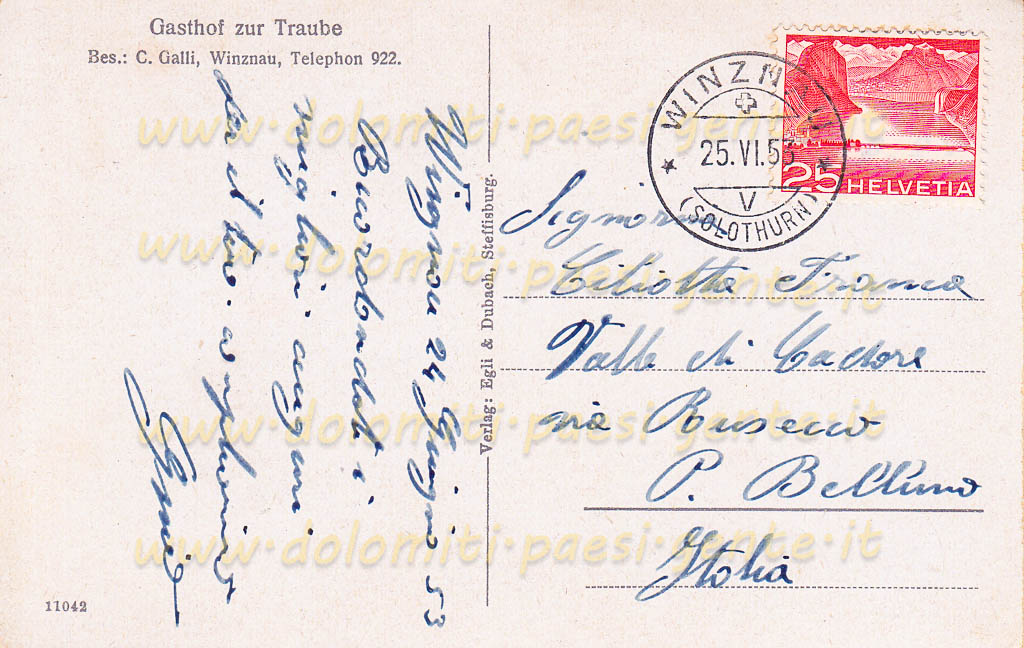 Gasthof zur Traube
Bes.: C. Galli, Winznau, Telephon 922.
Winznau 24 Giugno 53
Ricordandoti
migliori auguri
da il tuo
Verlag: Egli & Dubach, Steffisburg.
11042
WINZNAU
25.VI.53
V
(SOLOTHURN)
25 HELVETIA
Signorina
Ciliotta Franca
Valle di Cadore
via Rusecco
P. Belluno
Italia
www·dolomiti·paesi·gente·it
www·dolomiti·paesi·gente·it
www·dolomiti·paesi·gente·it
www·dolomiti·paesi·gente·it